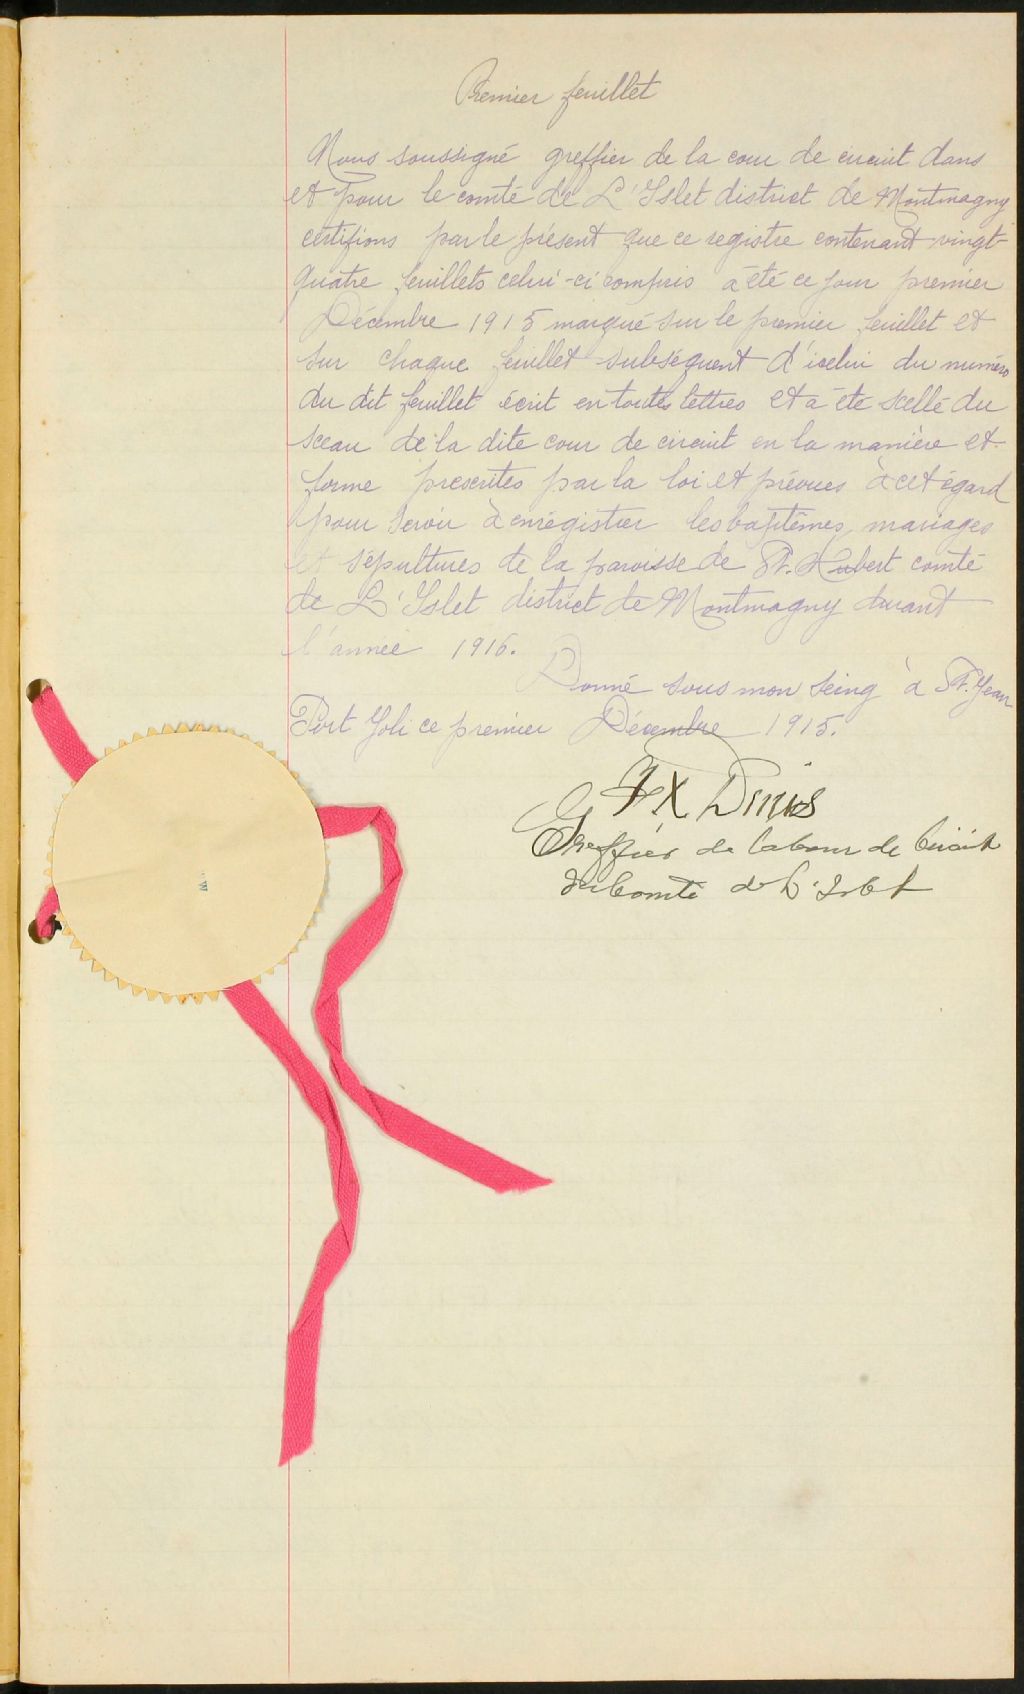 Premier feuillet
Nous soussigné greffier de la cour de circuit dans
et pour le comté de L'Islet district de Montmagny
certifions par le présent que ce registre contenant vingt-
quatre feuillets celui-ci compris a été ce jour premier
Décembre 1915 marqué sur le premier feuillet et
sur chaque feuillet subséquent d'icelui du numéro
du dit feuillet écrit en toutes lettres et a été scellé du
sceau de la dite cour de circuit en la manière et
forme prescrites par la loi et prévues à cet égard
pour servir à enrégistrer les baptêmes, mariages
et sépultures de la paroisse de St. Hubert comté
de L'Islet district de Montmagny durant
l'année 1916.
Donné sous mon seing à St. Jean
Port Joli ce premier Décembre 1915.
FX
Greffier de la Cour de Circuit
du Comté de L'Islet